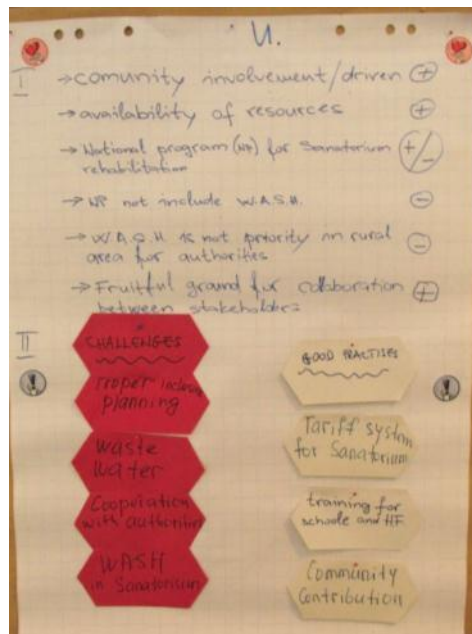 U.
I
→comunity involvement/driven +
→availability of resources +
→National program (NP) for Sanatorium +/-
rehabilitation
→NP not include W.A.S.H. -
→W.A.S.H is not priority in rural -
area for authorities
→Fruitful ground for collaboration +
between stakeholders
II
CHALLENGES
Proper inclusive
planning
Waste
Water
Cooperation
with authorities
WASH
in Sanatorium
GOOD PRACTISES
Tariff system
for Sanatorium
training for
schools and HF
Community
Contribution